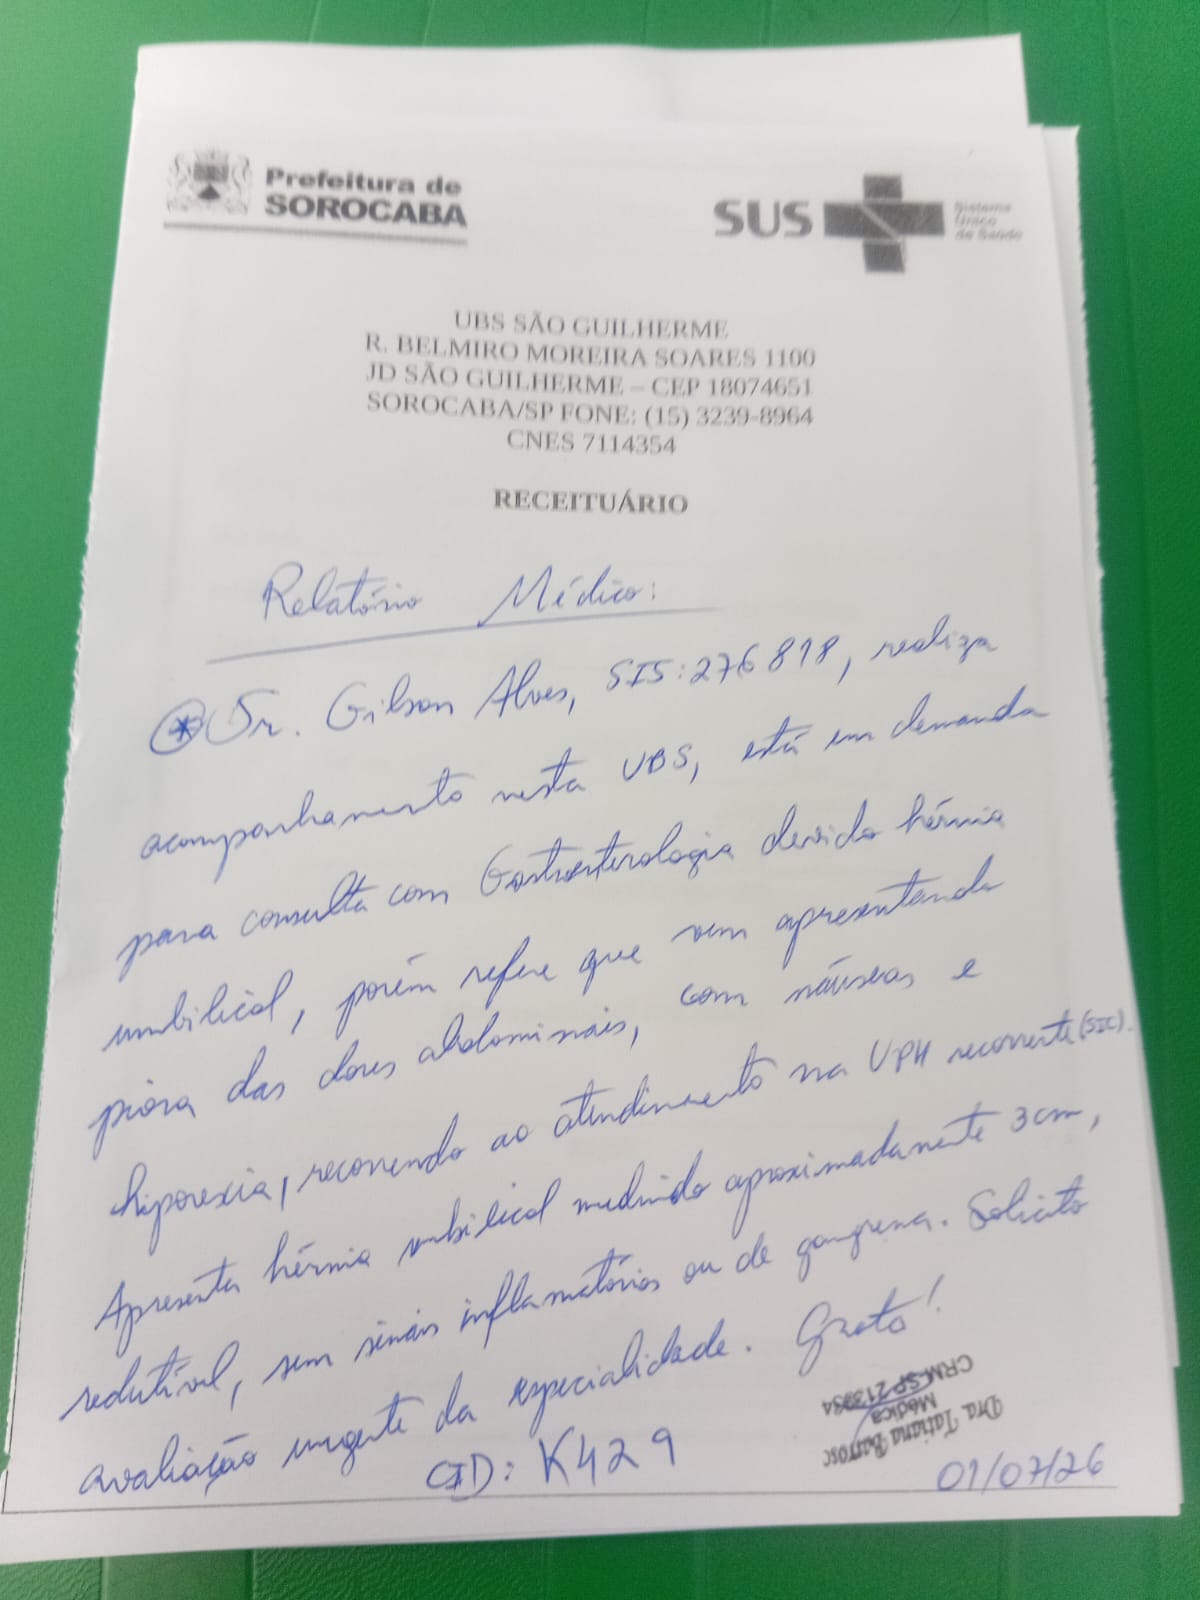 Prefeitura de
SOROCABA
SUS
Sistema
Único
de Saúde
UBS SÃO GUILHERME
R. BELMIRO MOREIRA SOARES 1100
JD SÃO GUILHERME – CEP 18074651
SOROCABA/SP FONE: (15) 3239-8964
CNES 7114354
RECEITUÁRIO
Relatório Médico:
* Sr. Gilson Alves, SIS: 276818, realiza
acompanhamento nesta UBS, está em demanda
para consulta com Gastroenterologia devido hérnia
umbilical, porém refere que vem apresentando
piora das dores abdominais, com náuseas e
hiporexia, recorrendo ao atendimento na UPH recorrente (SIC).
Apresenta hérnia umbilical medindo aproximadamente 3cm,
redutível, sem sinais inflamatórios ou de gangrena. Solicito
avaliação urgente da especialidade. Grato!
CID: K429
Dra. Tatiana Barros
Médica
CRM-SP
01/07/26